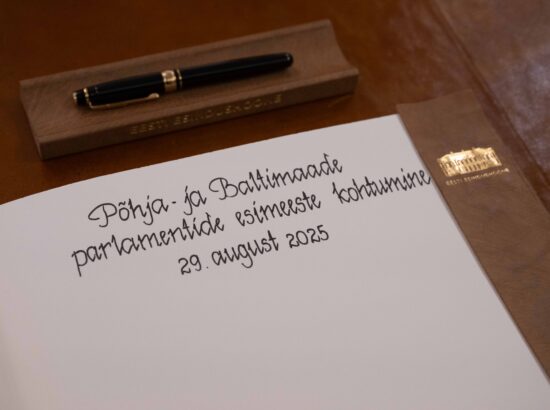 EESTI ESINDUSKOONE
Põhja- ja Baltimaade
parlamentide esimeeste kohtumine
29. august 2025
EESTI ESINDUSKOONE